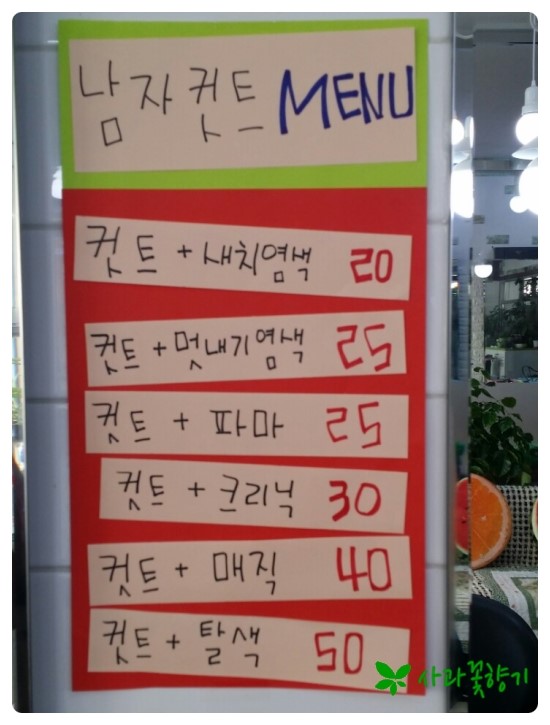 남자컷트 MENU
컷트 + 새치염색 20
컷트 + 멋내기염색 25
컷트 + 파마 25
컷트 + 크리닉 30
컷트 + 매직 40
컷트 + 탈색 50
사과꽃향기